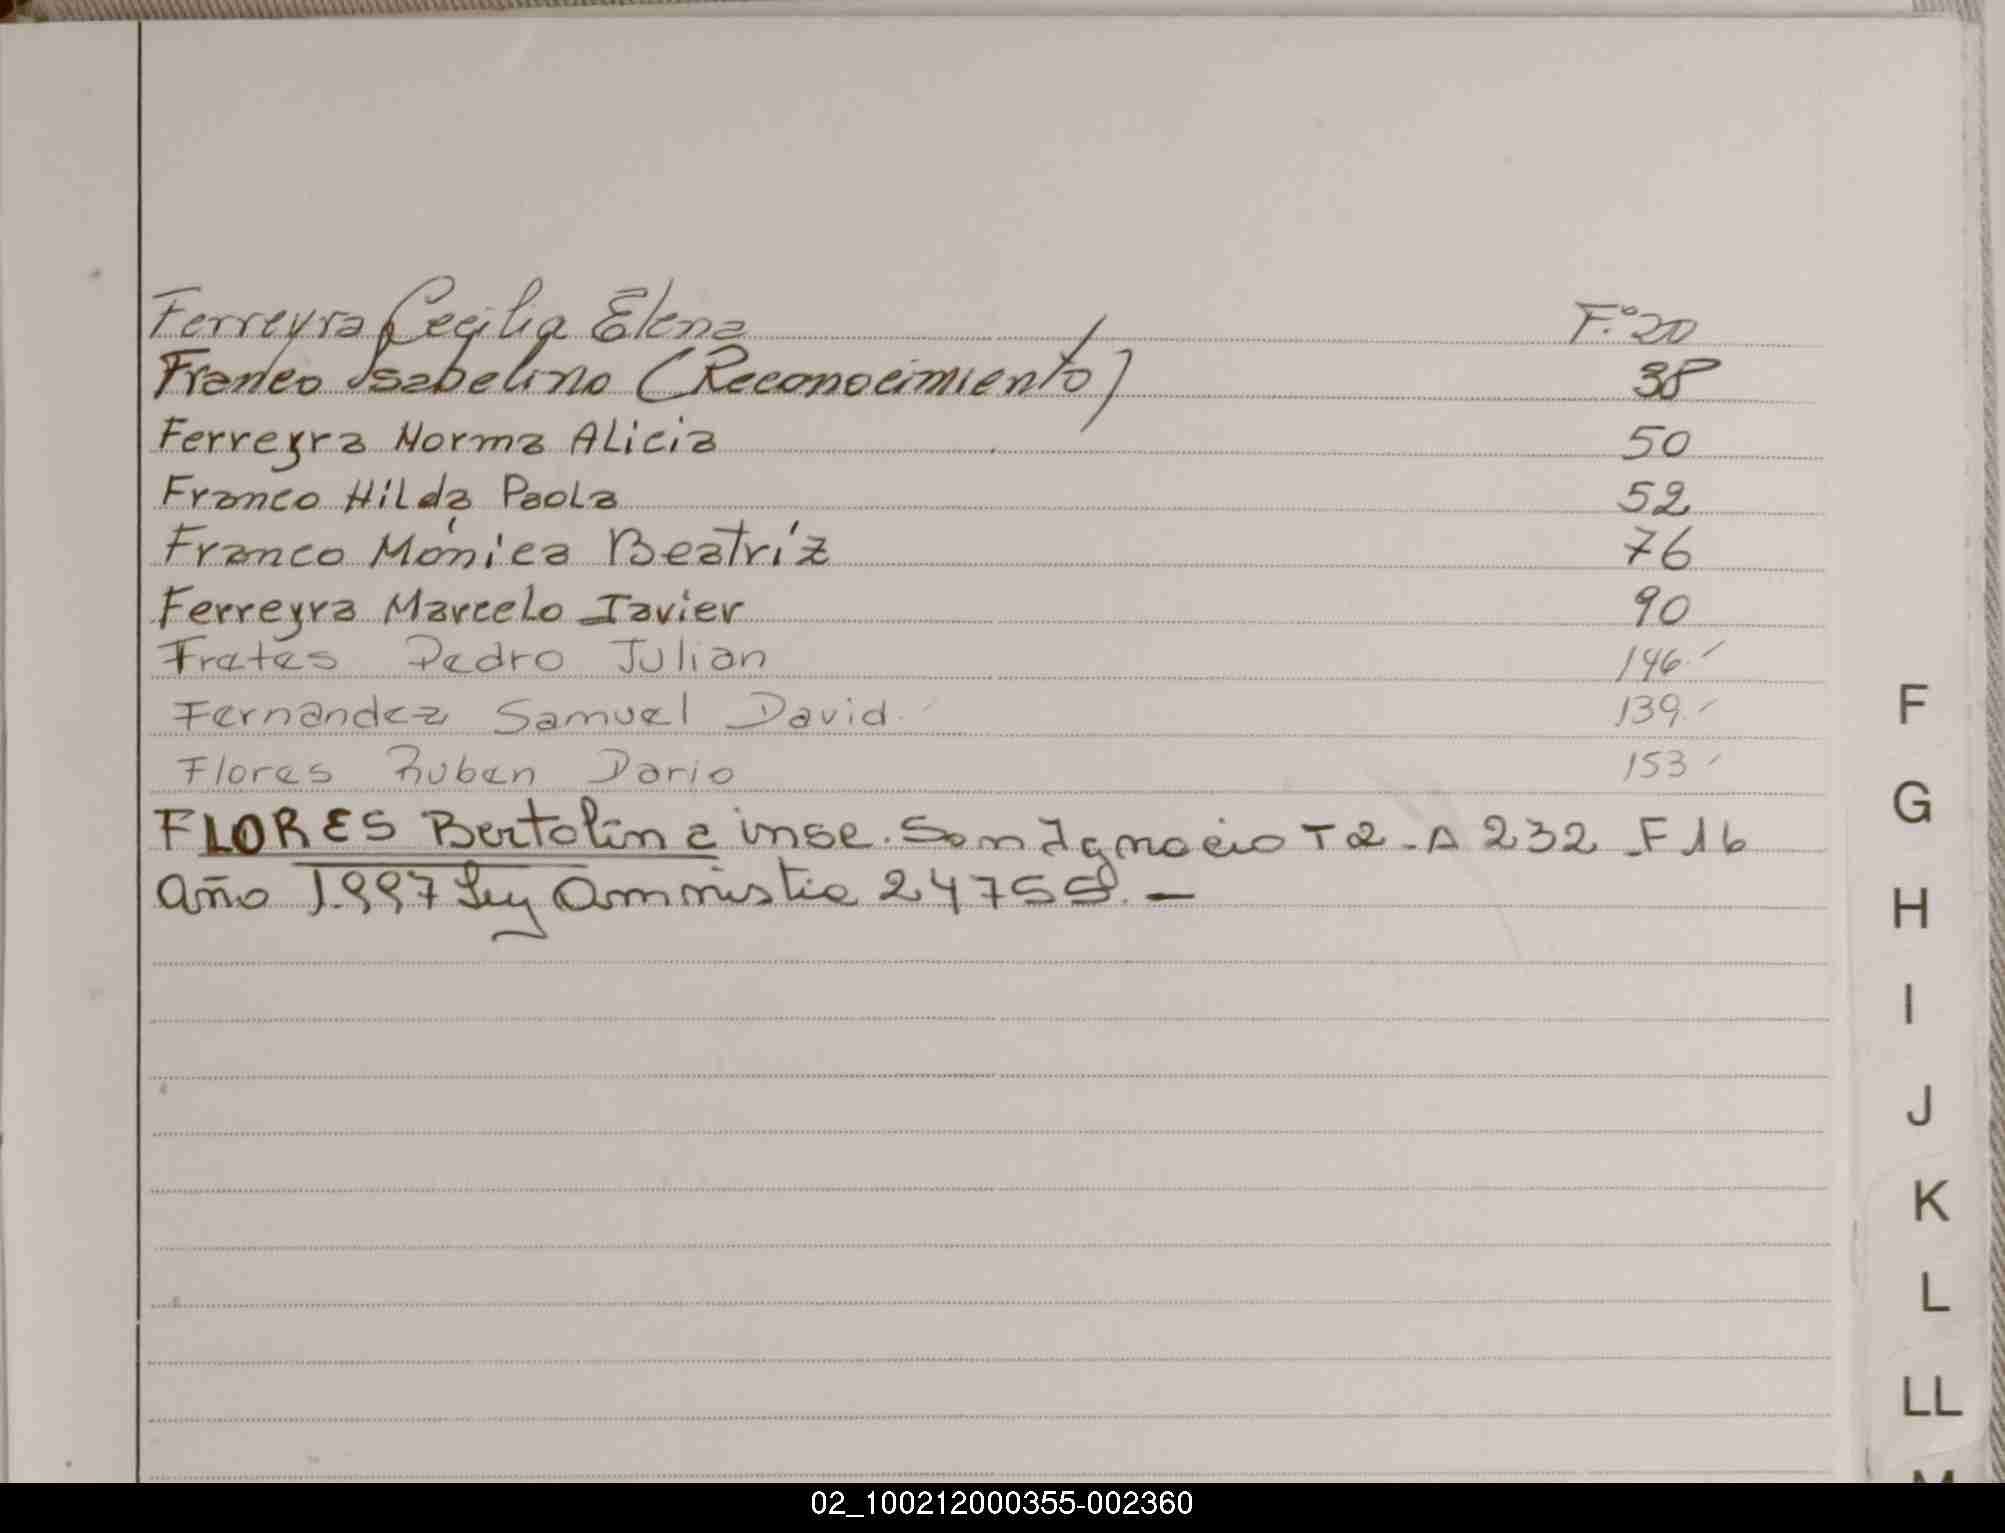 Ferreyra Cecilia Elena F.º 20
Franco Isabelino (Reconocimiento) 38
Ferreyra Norma Alicia 50
Franco Hilda Paola 52
Franco Mónica Beatríz 76
Ferreyra Marcelo Javier 90
Fretes Pedro Julian 146
Fernandez Samuel David 139
Flores Ruben Dario 153
FLORES Bertolina insc. San Ignacio T 2 - A 232 - F 16
año 1.997 Ley Amnistia 24755. —
F
G
H
I
J
K
L
LL
M
02_100212000355-002360